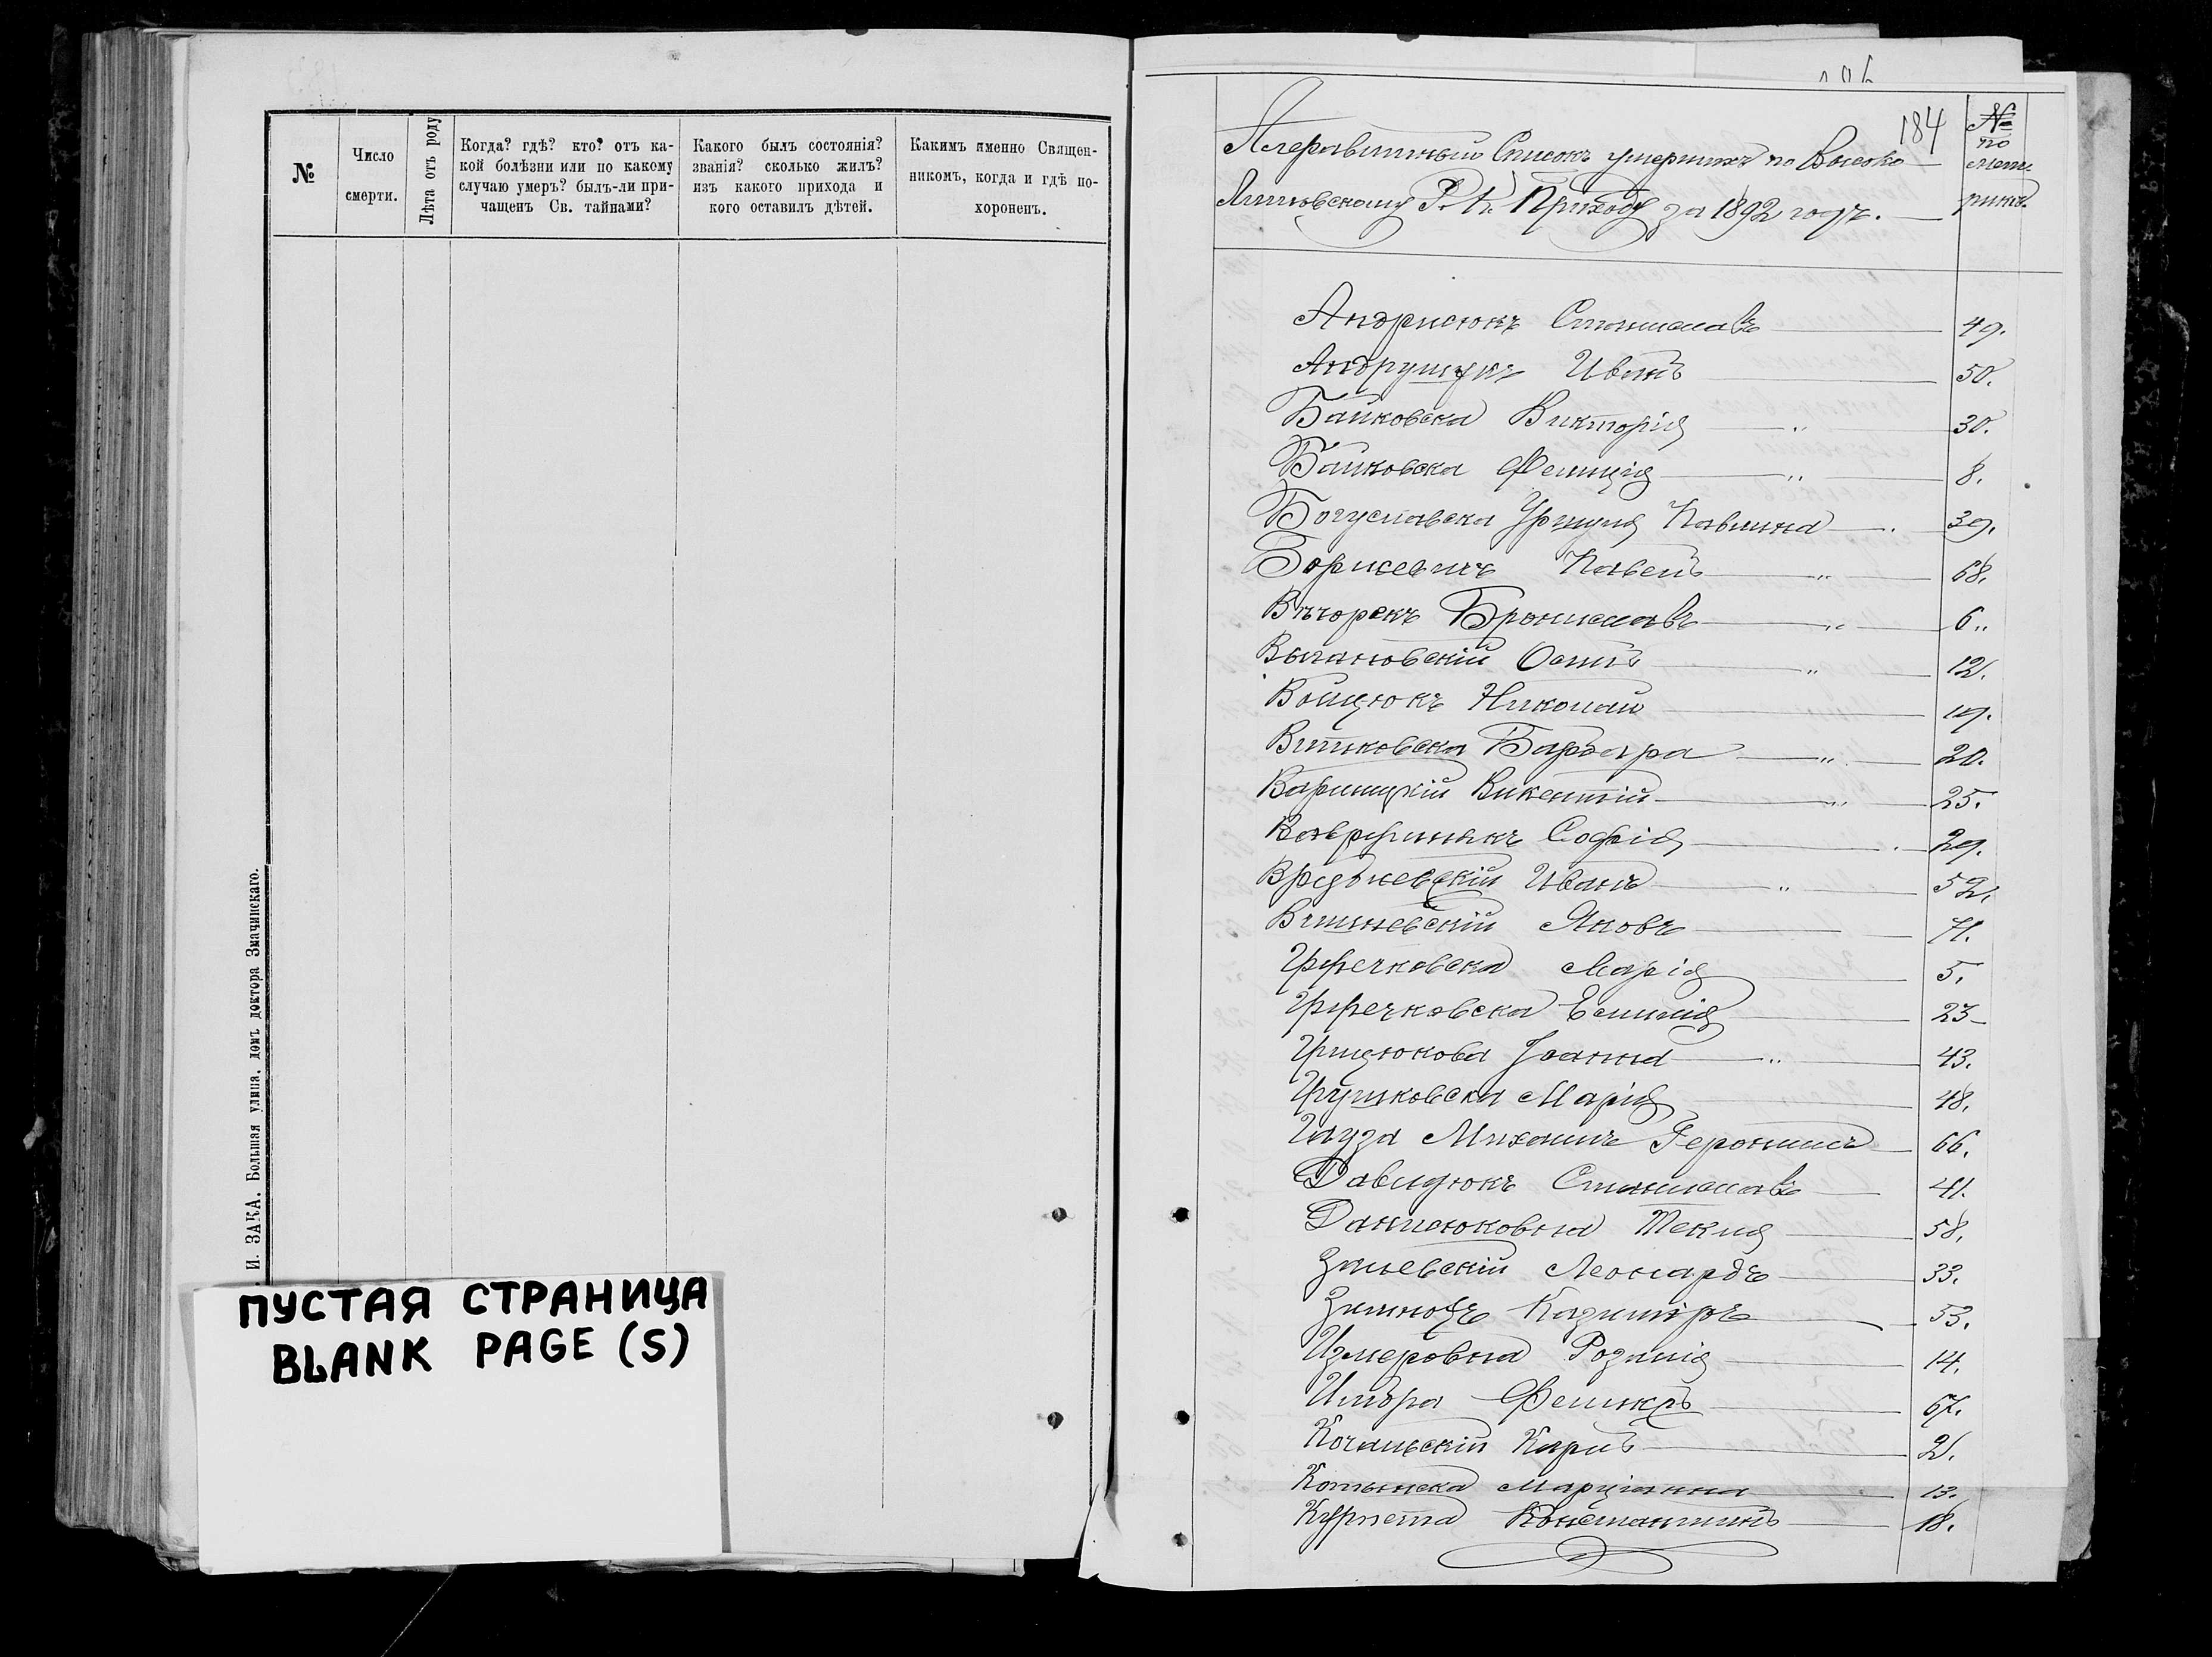 №
Число
смерти.
Лѣта отъ роду
Когда? гдѣ? кто? отъ ка-
кой болѣзни или по какому
случаю умеръ? былъ-ли при-
чащенъ Св. тайнами?
Какого былъ состоянія?
званія? сколько жилъ?
изъ какого прихода и
кого оставилъ дѣтей.
Какимъ именно Священ-
никомъ, когда и гдѣ по-
хороненъ.
И. ЗАКА. Большая улица, домъ доктора Значинскаго.
ПУСТАЯ СТРАНИЦА
BLANK PAGE (S)
184
Алфавитный Списокъ умершихъ по Высоко
Литовскому Р. К. Приходу за 1892 годъ.
№
по
метрикъ.
Андрисюкъ Станиславъ 49.
Андрущукъ Иванъ 50.
Байковска Викторія 30.
Байковска Фелиція 8.
Богуславска Уршуля Павлина 39.
Боржевичъ Павелъ 68.
Вѣчорекъ Брониславъ 6.
Осипъ 12.
Войцюкъ Николай 19.
Витковска Барбара 20.
Викентій 25.
Софія 29.
Иванъ 52.
Вишневскій Яковъ 71.
Марія 5.
Емилія 23
Грицюкова Іоанна 43.
Грушковска Марія 48.
Гауза Михаилъ Геронимъ 66.
Давидюкъ Станиславъ 41.
Данисюковна Текля 58.
Залевскій Леонардъ 33.
Казиміръ 53.
Измеровна Розалія 14.
Феликсъ 67.
Качинскій Карлъ 2.
Марціанна 13.
Курпета Константинъ 18.